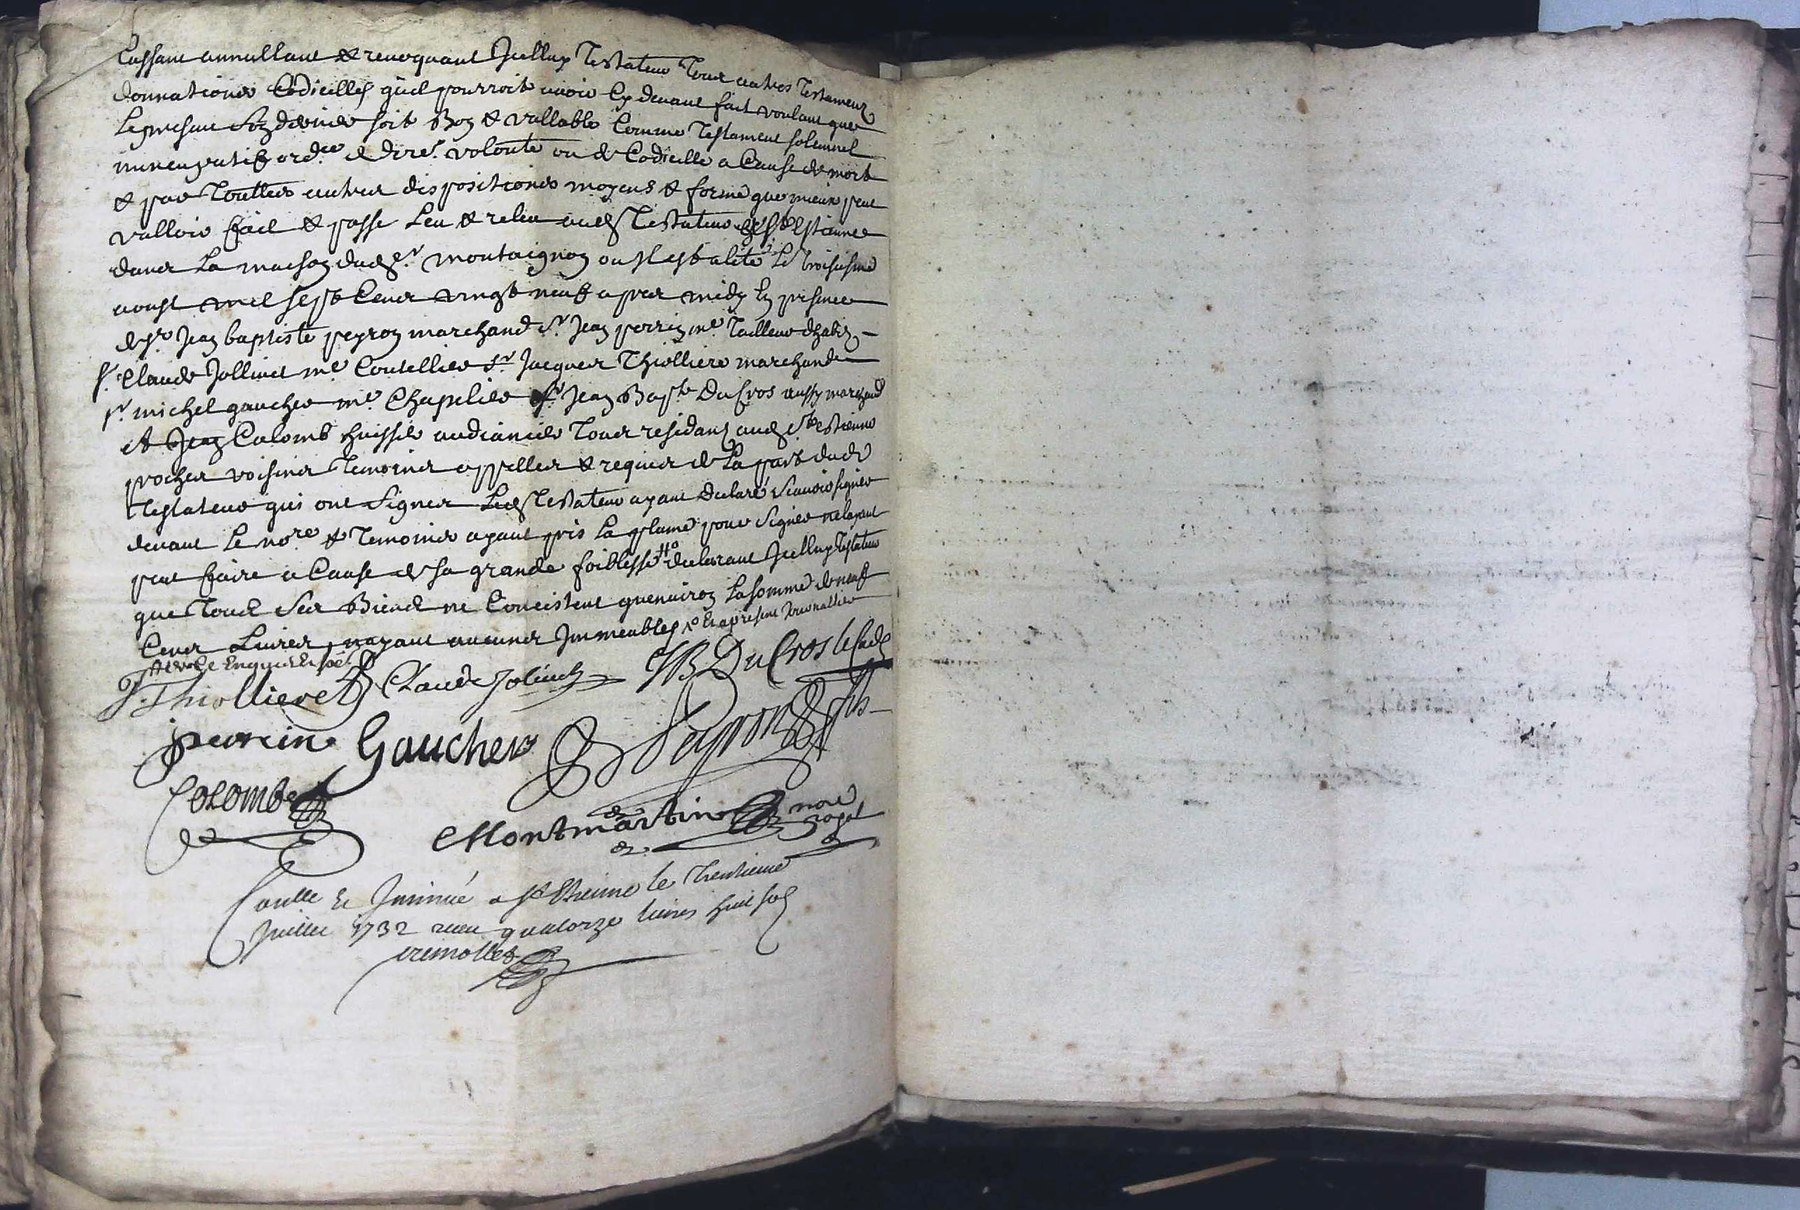 Cassant annullant & revoquant Jcelluy Testateur Tous autres Testaments
donnations Codicilles quil pourroit avoir Cy devant fait voulant que
Le present Son dernier soit Bon & vallable Comme Testament solemnel
nuncupatif ord.re & dern.re volonté ou de Codicille a Cause de mort
& par Touttes autres dispositions moyens & forme que mieux peut
valloir fait & passé Leu & releu aud Testateur aud St Estienne
dans La maison dud Sr. montaignon ou Jl est alité Le Troisieme
aoust mil sept Cens vingt neuf apres midy En presence
de Sr Jean baptiste peyron marchand Sr Jean perrin me Tailleur dhabits
Sr. Claude Jollinet me Coutellier Sr Jacques Thiolliere marchand
Sr michel gaucher me Chapelier Sr Jean Bapte DuCros aussy marchand
et Jean Colomb huissier audiancier Tous residants aud St estienne
proches voisins Temoins appellés & requis de La part dudt
Testateur qui ont Signés Led Testateur ayant Declaré Scavoir signer
devant Le nore & Temoins ayant pris La plume pour Signer ne layant
peut faire a Cause de Sa grande foiblesse declarant Jcelluy Testateur
que Tous Ses Biens ne Concistent quenviron La somme de neuf
Cens Livres nayant aucuns Jmmeubles et apresent Journallier
De ce Enquis
J. Thiolliere Claude Jolinet JB DuCros le Cadet
perrin Gaucher Peyron fils
Colomb
Montmartin nore royal
Conllé Et Jnsinué a St Etienne le Trentieme
Juillet 1732 recu quatorze livres huit sols